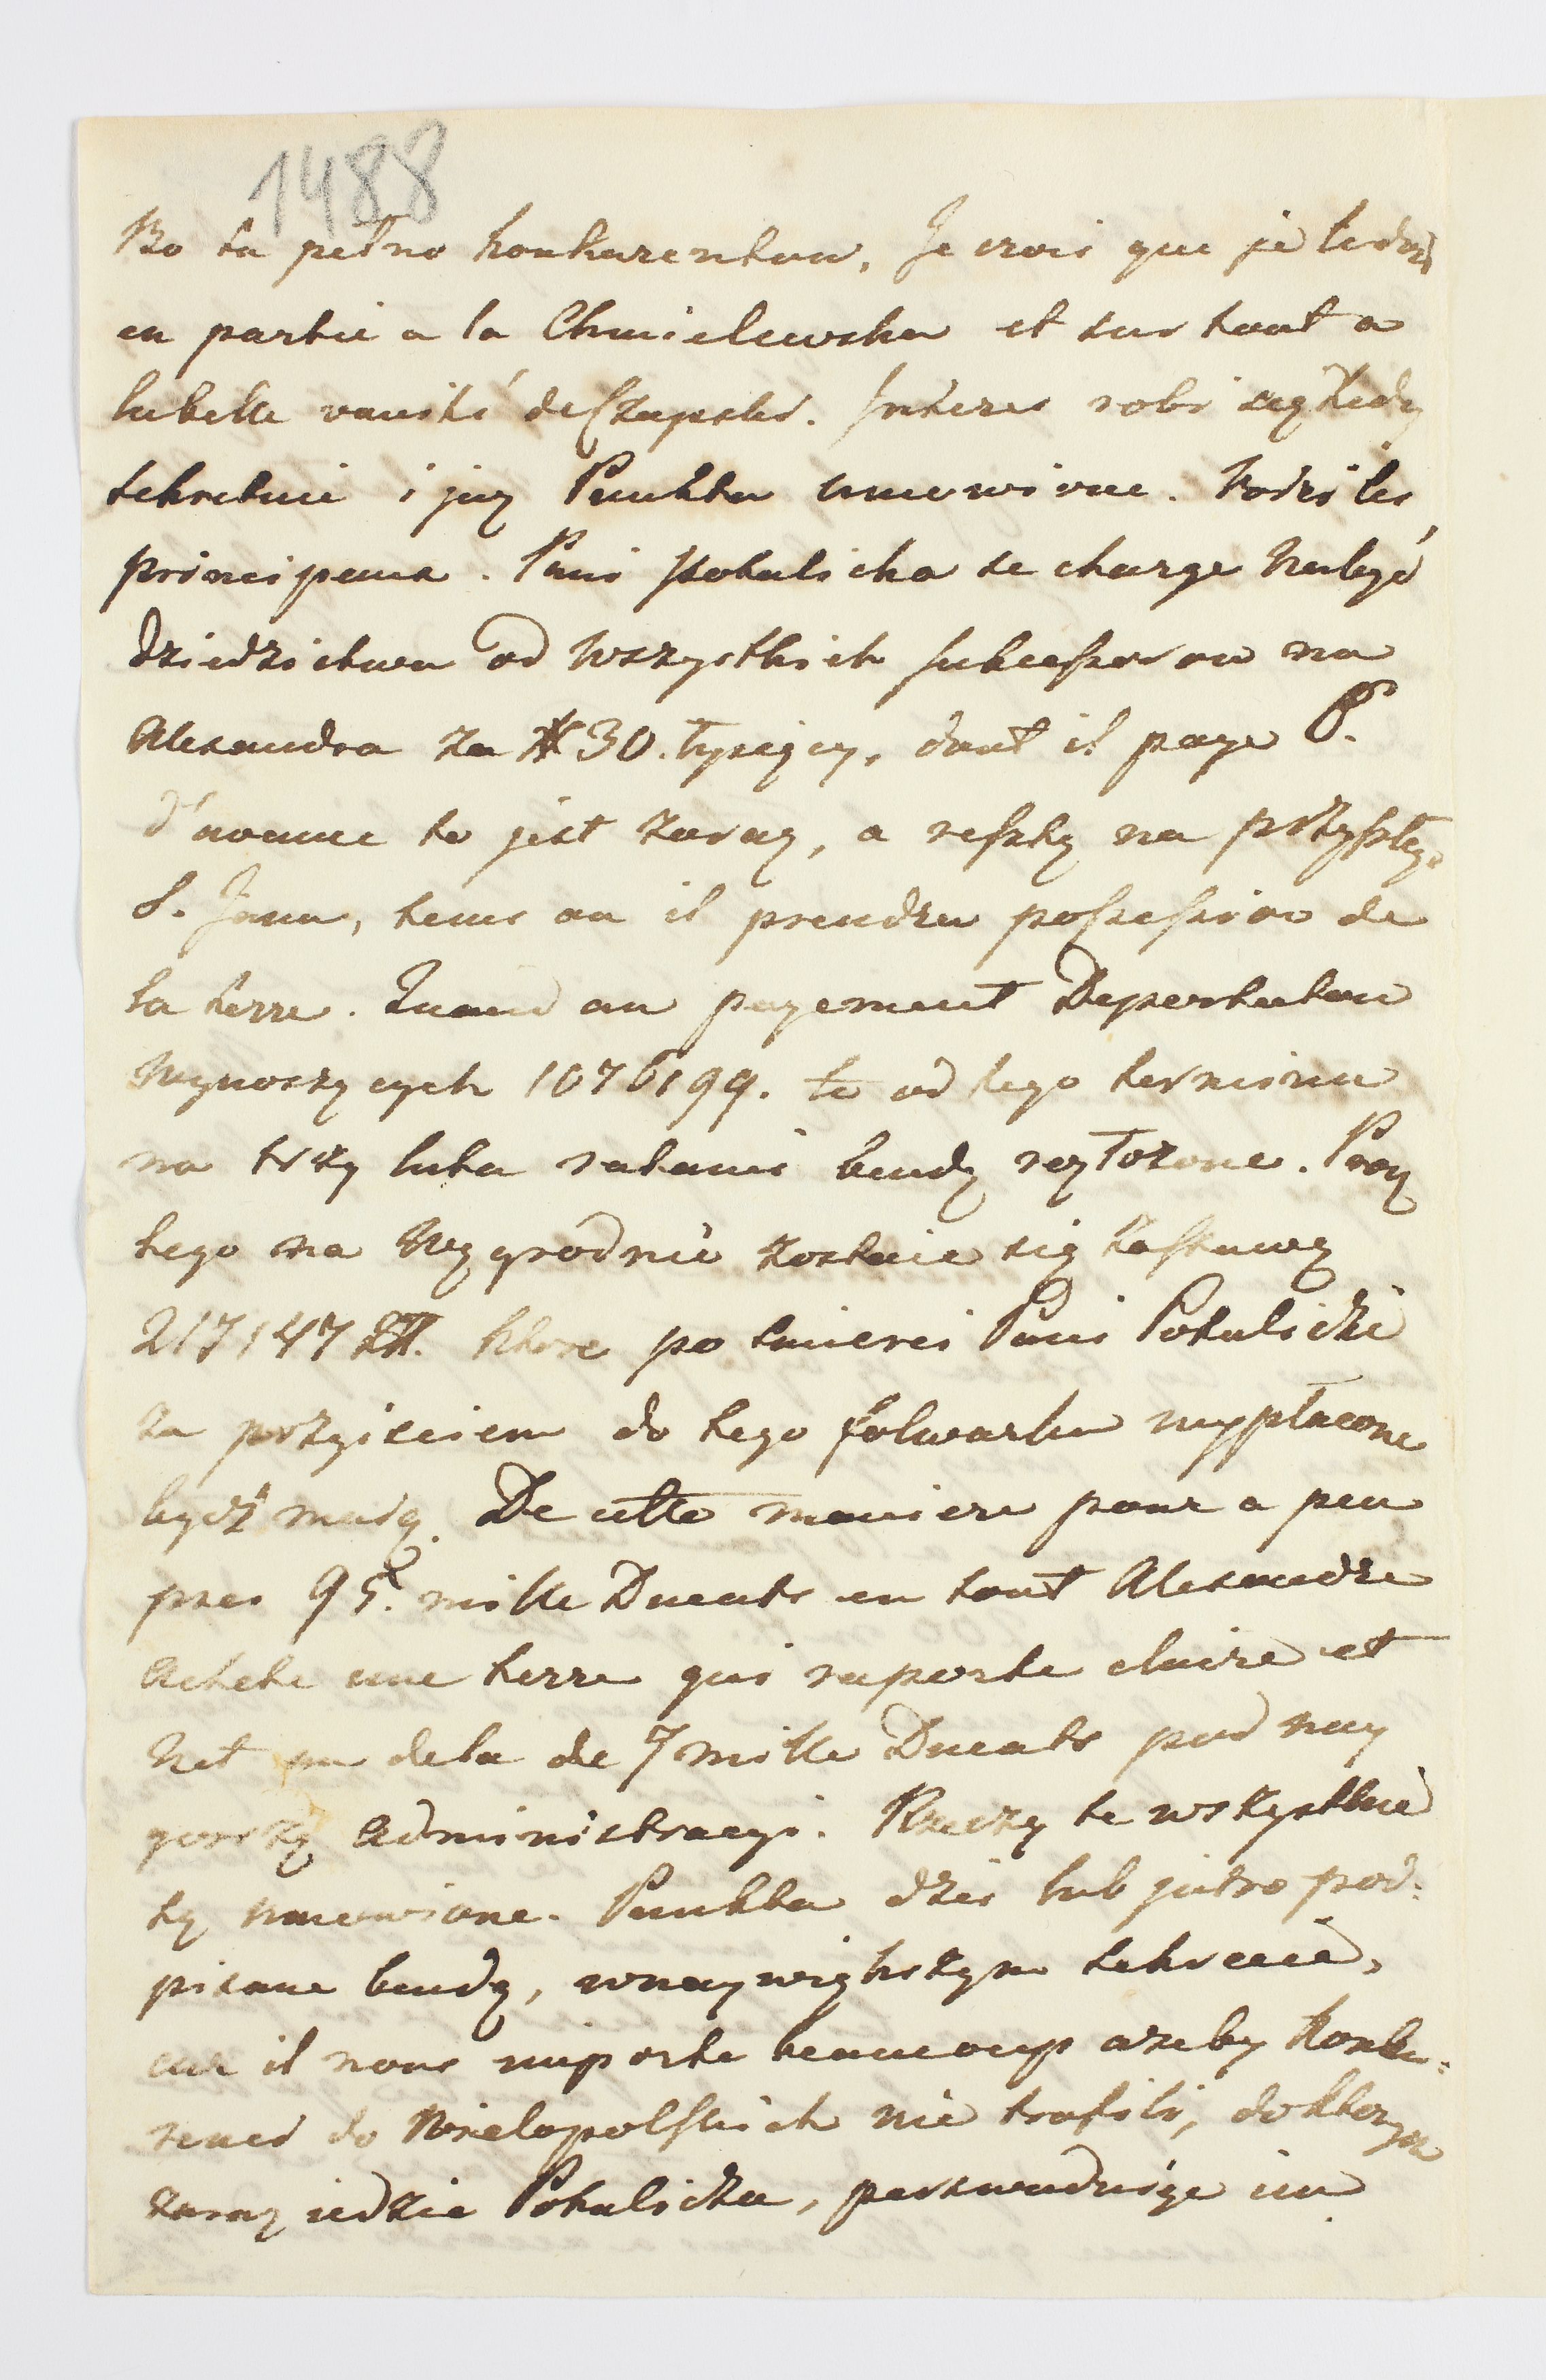 1488
Bo tu pełno konkurentow, Je crois que je le dois
en partie a la Chmielewska et sur tout a
la belle vanité de Szapski. Interes robi się tedy
sekretnie i juz Punkta umowione. Voici les
principaux. Pani Potulicka se charge Nabyć
dziedzictwa od Wszystkich sukcessorow na
Alexandra za # 30. tysięcy, dont il paye 8.
d'avance to jest zaraz, a resztę na przyszłego
S. Jana, tems ou il prendra possession de
la terre. Quand au payement Depertutow
Wynoszących 1076199. to od tego terminu
na trzy lata ratami bendą rozłożone. Procz
tego na Wygrodnie zostaie się zastawy
217147 Zł. ktore po smierci Pani Potulicki
za przyisciem do tego folwarku wypłacone
bydź maią. De cette maniere pour a peu
pres 95. mille Ducats en tout Alexandre
Achete une terre qui raporte claire et
Net au dela de 7 mille Ducats pod nay
gorszą administracyi. Rzeczy te wszystkie
są umowione. Punkta dzis lub jutro pod:
pisane bendą, w naywiększym sekrecie,
car il nous importe beaucoup azeby Konku:
renci do Wielopolskich nie trafili, do ktorych
zaraz iedzie Potulicka, perswaduiąc im